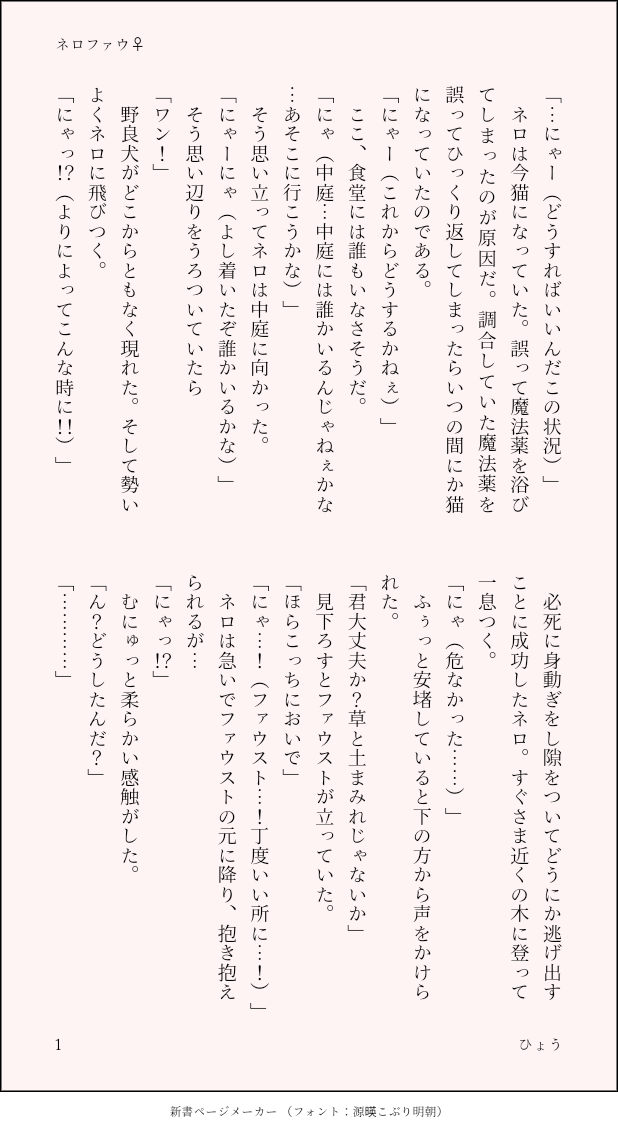 ネロファウ♀
「…にゃー（どうすればいいんだこの状況）」
ネロは今猫になっていた。誤って魔法薬を浴び
てしまったのが原因だ。調合していた魔法薬を
誤ってひっくり返してしまったらいつの間にか猫
になっていたのである。
「にゃー（これからどうするかねぇ）」
ここ、食堂には誰もいなさそうだ。
「にゃ（中庭…中庭には誰かいるんじゃねぇかな
…あそこに行こうかな）」
そう思い立ってネロは中庭に向かった。
「にゃーにゃ（よし着いたぞ誰かいるかな）」
そう思い辺りをうろついていたら
「ワン！」
野良犬がどこからともなく現れた。そして勢い
よくネロに飛びつく。
「にゃっ!?（よりによってこんな時に!!）」
必死に身動ぎをし隙をついてどうにか逃げ出す
ことに成功したネロ。すぐさま近くの木に登って
一息つく。
「にゃ（危なかった……）」
ふぅっと安堵していると下の方から声をかけら
れた。
「君大丈夫か？草と土まみれじゃないか」
見下ろすとファウストが立っていた。
「ほらこっちにおいで」
「にゃ…！（ファウスト…！丁度いい所に…！）」
ネロは急いでファウストの元に降り、抱き抱え
られるが…
「にゃっ!?」
むにゅっと柔らかい感触がした。
「ん？どうしたんだ？」
「…………」
ひょう
1
新書ページメーカー（フォント：源暎こぶり明朝）